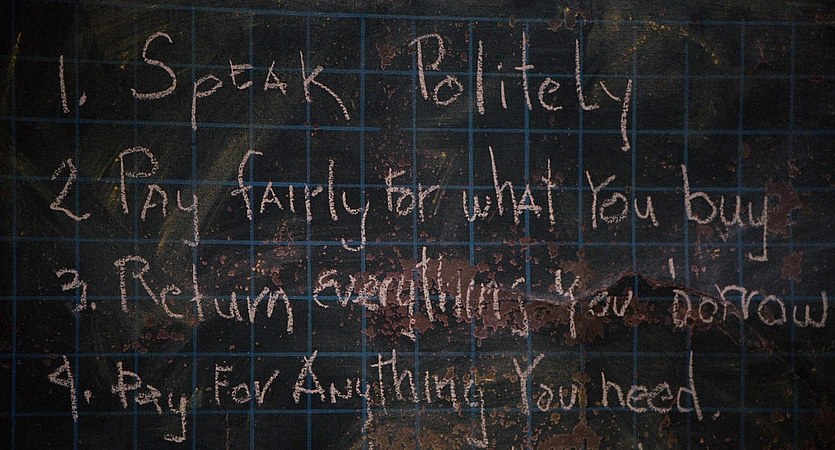 1. Speak Politely
2 Pay fairly for what You buy
3. Return everything You borrow
4. Pay For Anything You need.